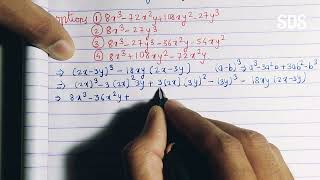 SDS
Options ① 8x³ - 72x²y + 108xy² - 27y³
② 8x³ - 27y³
③ 8x³ - 27y³ - 36x²y + 54xy²
④ 8x³ + 108xy² - 72x²y
⇒ (2x-3y)³ - 18xy (2x-3y) (a-b)³ ⇒ a³-3a²b+3ab²-b³
⇒ (2x)³ - 3(2x)² 3y + 3(2x)(3y)² - (3y)³ - 18xy (2x-3y)
⇒ 8x³ - 36x²y +